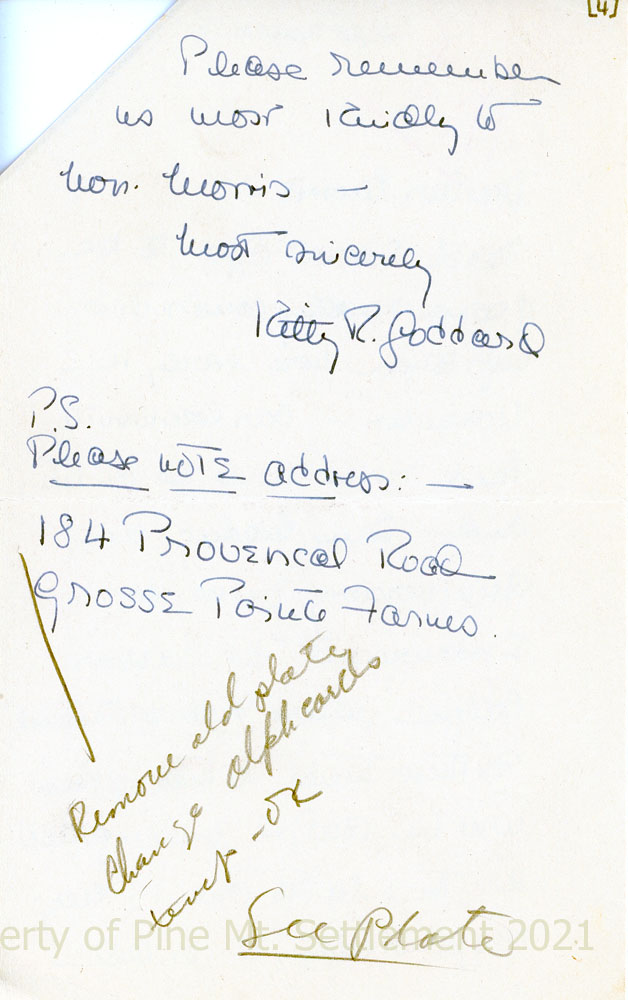 [4]
Please remember
us most kindly to
Mr. Morris —
Most sincerely
Kitty R. Goddard
P.S.
Please NOTE address: —
184 Provencal Road
Grosse Pointe Farms.
Remove old plate
Change alph cards
- OK
See Plate
erty of Pine Mt. Settlement 2021